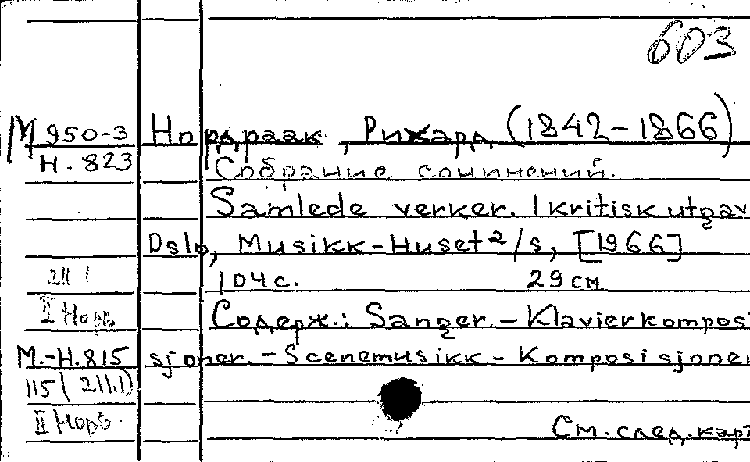 603
М 950-3 Нордраак, Рихард (1842-1866)
Н. 823 Собрание сочинений.
Samlede verker. I kritisk utgav
Oslo, Musikk-Huset a/s, [1966]
104 с. 29 см
Содерж.: Sanger. - Klavierkomposi
М.-Н.815 sjoner. - Scenemusikk - Komposisjoner
115 (211.1)
II Норв.
См. след. карт